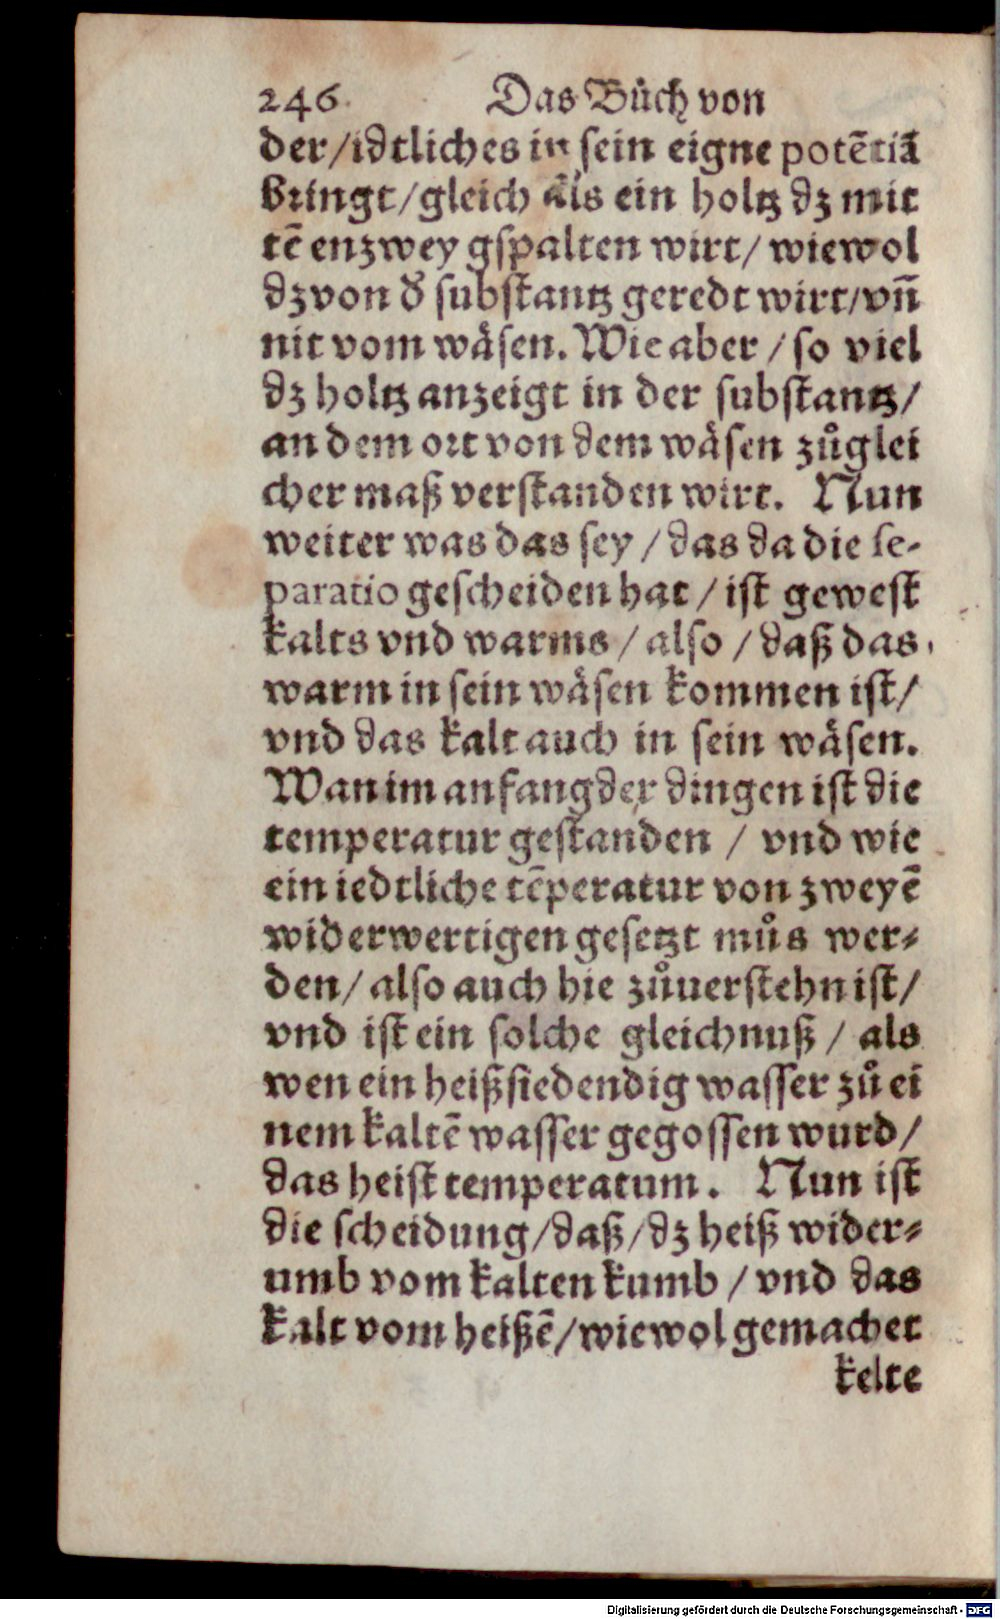 246 Das Bůch von
der/idtliches in sein eigne potētiā
bringt/gleich als ein holtz dz mit
tē enzwey gspalten wirt/ wiewol
dz von d' substantz geredt wirt/vn̄
nit vom wäsen. Wie aber / so viel
dz holtz anzeigt in der substantz/
an dem ort von dem wäsen zůglei
cher maß verstanden wirt. Nun
weiter was das sey / das da die se-
paratio gescheiden hat / ist gewest
kalts vnd warms / also / daß das
warm in sein wäsen kommen ist/
vnd das kalt auch in sein wäsen.
Wan im anfang der dingen ist die
temperatur gestanden / vnd wie
ein iedtliche tēperatur von zweyē
widerwertigen gesetzt můs wer-
den/ also auch hie zůuerstehn ist/
vnd ist ein solche gleichnuß / als
wen ein heiß siedendig wasser zů ei
nem kaltē wasser gegossen wurd/
das heist temperatum. Nun ist
die scheidung/daß/dz heiß wider-
umb vom kalten kumb / vnd das
kalt vom heißē/wiewol gemachet
kelte
Digitalisierung gefördert durch die Deutsche Forschungsgemeinschaft - DFG